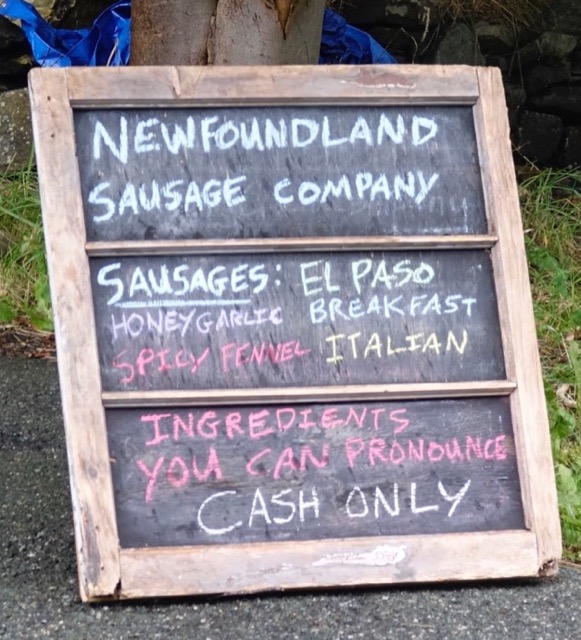 NEWFOUNDLAND
SAUSAGE COMPANY
SAUSAGES: EL PASO
HONEY GARLIC BREAKFAST
SPICY FENNEL ITALIAN
INGREDIENTS
YOU CAN PRONOUNCE
CASH ONLY